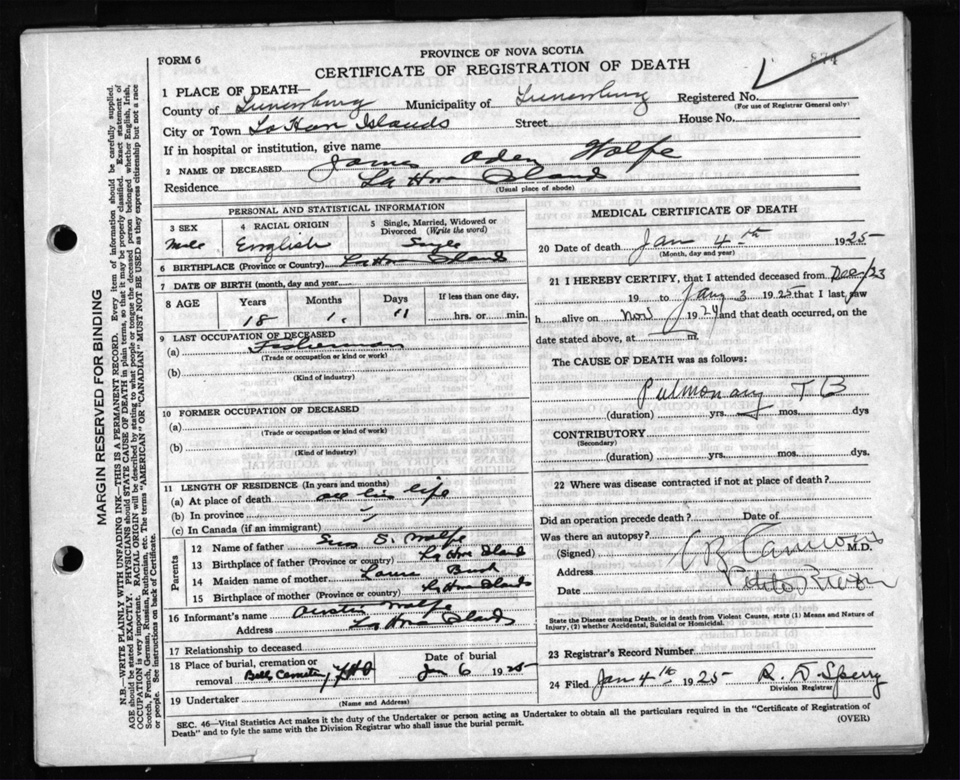 FORM 6
PROVINCE OF NOVA SCOTIA
CERTIFICATE OF REGISTRATION OF DEATH
874
1 PLACE OF DEATH—
County of Lunenburg Municipality of Lunenburg Registered No.
(For use of Registrar General only)
City or Town La Have Islands Street House No.
If in hospital or institution, give name
2 NAME OF DECEASED James Aden Wolfe
Residence La Have Island
(Usual place of abode)
PERSONAL AND STATISTICAL INFORMATION
3 SEX 4 RACIAL ORIGIN 5 Single, Married, Widowed or Divorced (Write the word)
Male English Single
6 BIRTHPLACE (Province or Country) La Have Island
7 DATE OF BIRTH (month, day and year)
8 AGE Years Months Days If less than one day,
18 1. 11 hrs. or min.
9 LAST OCCUPATION OF DECEASED
(a) Fisherman
(Trade or occupation or kind or work)
(b)
(Kind of industry)
10 FORMER OCCUPATION OF DECEASED
(a)
(Trade or occupation or kind of work)
(b)
(Kind of industry)
11 LENGTH OF RESIDENCE (In years and months)
(a) At place of death all his life
(b) In province "
(c) In Canada (if an immigrant)
Parents
12 Name of father S. Wolfe
13 Birthplace of father (Province or country) La Have Island
14 Maiden name of mother Laura Bush
15 Birthplace of mother (Province or country) La Have Islands
16 Informant's name Austin Wolfe
Address La Have Islands
17 Relationship to deceased
18 Place of burial, cremation or removal Bells Cemetery Date of burial Jan 6 1925
19 Undertaker
(Name and Address)
MEDICAL CERTIFICATE OF DEATH
20 Date of death Jan 4th 1925
(Month, day and year)
21 I HEREBY CERTIFY, that I attended deceased from Dec/23
19 to Jany 3 1925 that I last saw
h alive on Nov 1924 and that death occurred, on
date stated above, at m.
The CAUSE OF DEATH was as follows:
Pulmonary TB
(duration) yrs. mos. dys
CONTRIBUTORY
(Secondary)
(duration) yrs. mos. dys.
22 Where was disease contracted if not at place of death?
Did an operation precede death? Date of
Was there an autopsy?
(Signed) M.D.
Address
Date
State the Disease causing Death, or in death from Violent Causes, state (1) Means and Nature of Injury, (2) whether Accidental, Suicidal or Homicidal.
23 Registrar's Record Number
24 Filed Jan 4th 1925 R. D. Sperry
Division Registrar
SEC. 46—Vital Statistics Act makes it the duty of the Undertaker or person acting as Undertaker to obtain all the particulars required in the "Certificate of Registration of
Death" and to fyle the same with the Division Registrar who shall issue the burial permit. (OVER)
MARGIN RESERVED FOR BINDING
N.B.—WRITE PLAINLY WITH UNFADING INK—THIS IS A PERMANENT RECORD. Every item of information should be carefully supplied.
AGE should be stated EXACTLY. PHYSICIANS should STATE CAUSE OF DEATH in plain terms, so that it may be properly classified. Exact statement of
OCCUPATION is very important. RACIAL ORIGIN will be described by stating to what people or tongue the deceased person belonged whether English, Irish,
Scotch, French, German, Russian, Ruthenian, etc. The terms "AMERICAN" OR "CANADIAN" MUST NOT BE USED as they express citizenship but not a race
or people. See instructions on back of Certificate.